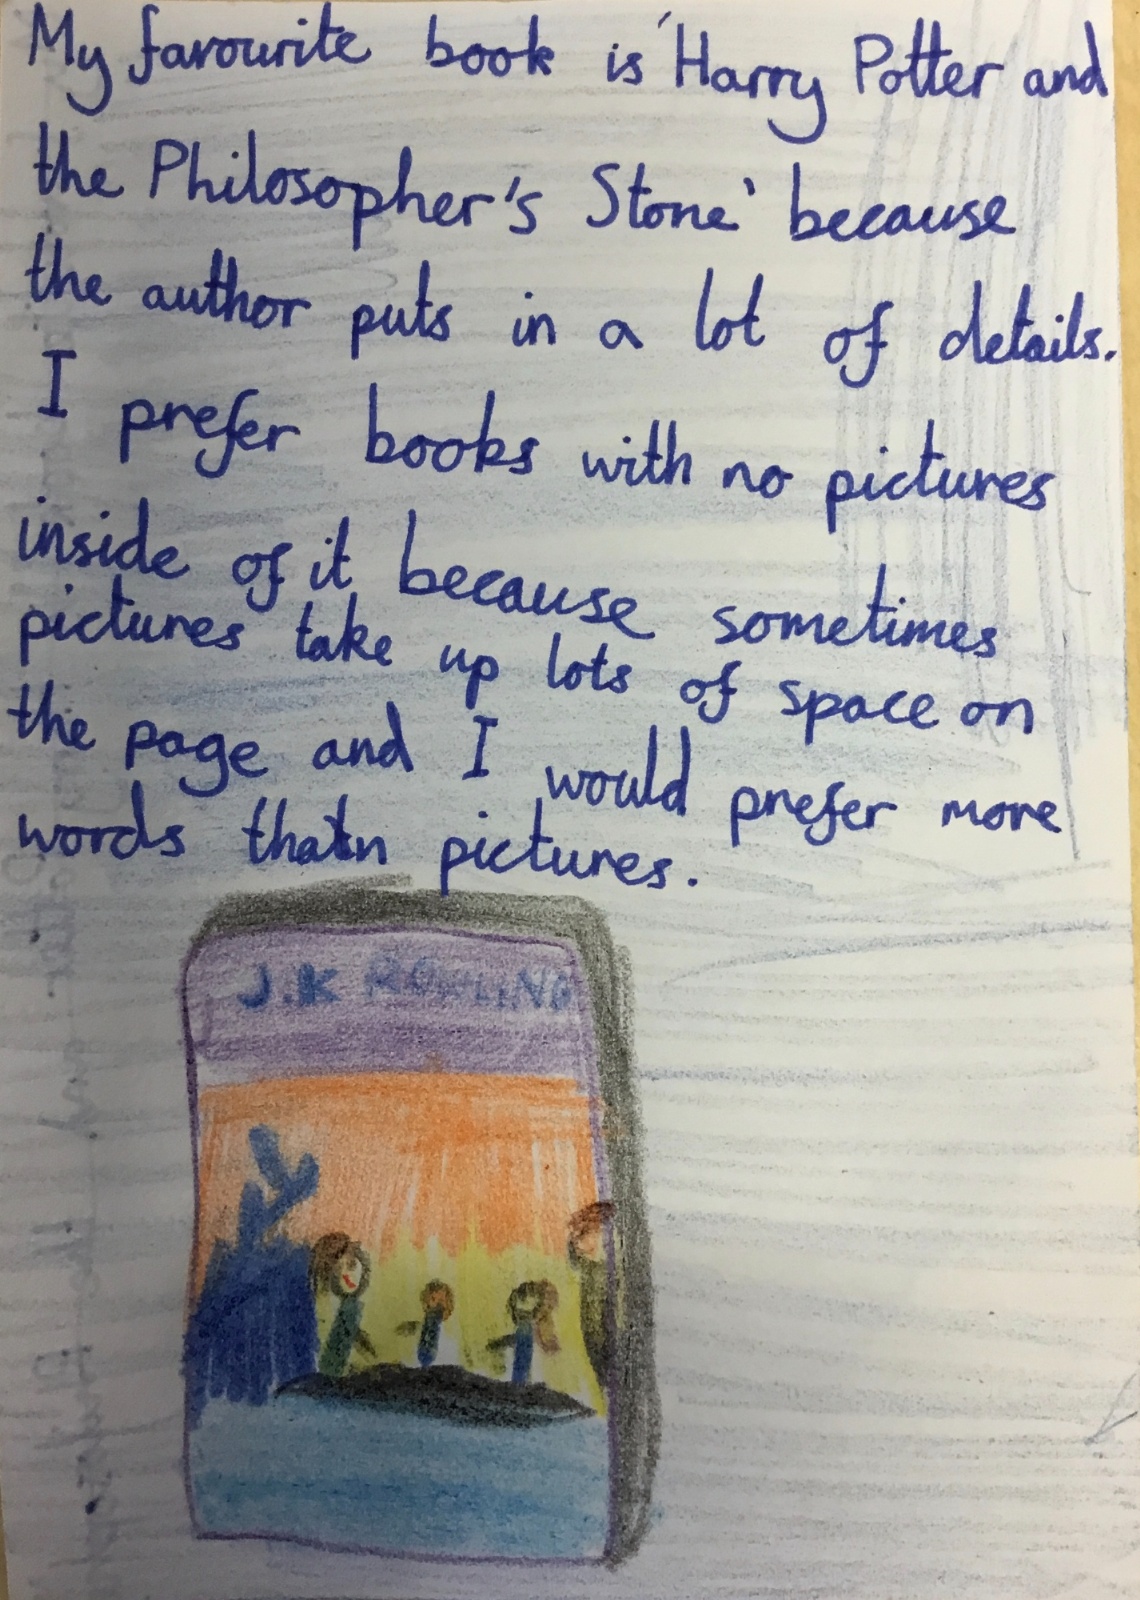 My favourite book is 'Harry Potter and
the Philosopher's Stone' because
the author puts in a lot of details.
I prefer books with no pictures
inside of it because sometimes
pictures take up lots of space on
the page and I would prefer more
words than pictures.
J.K ROWLING